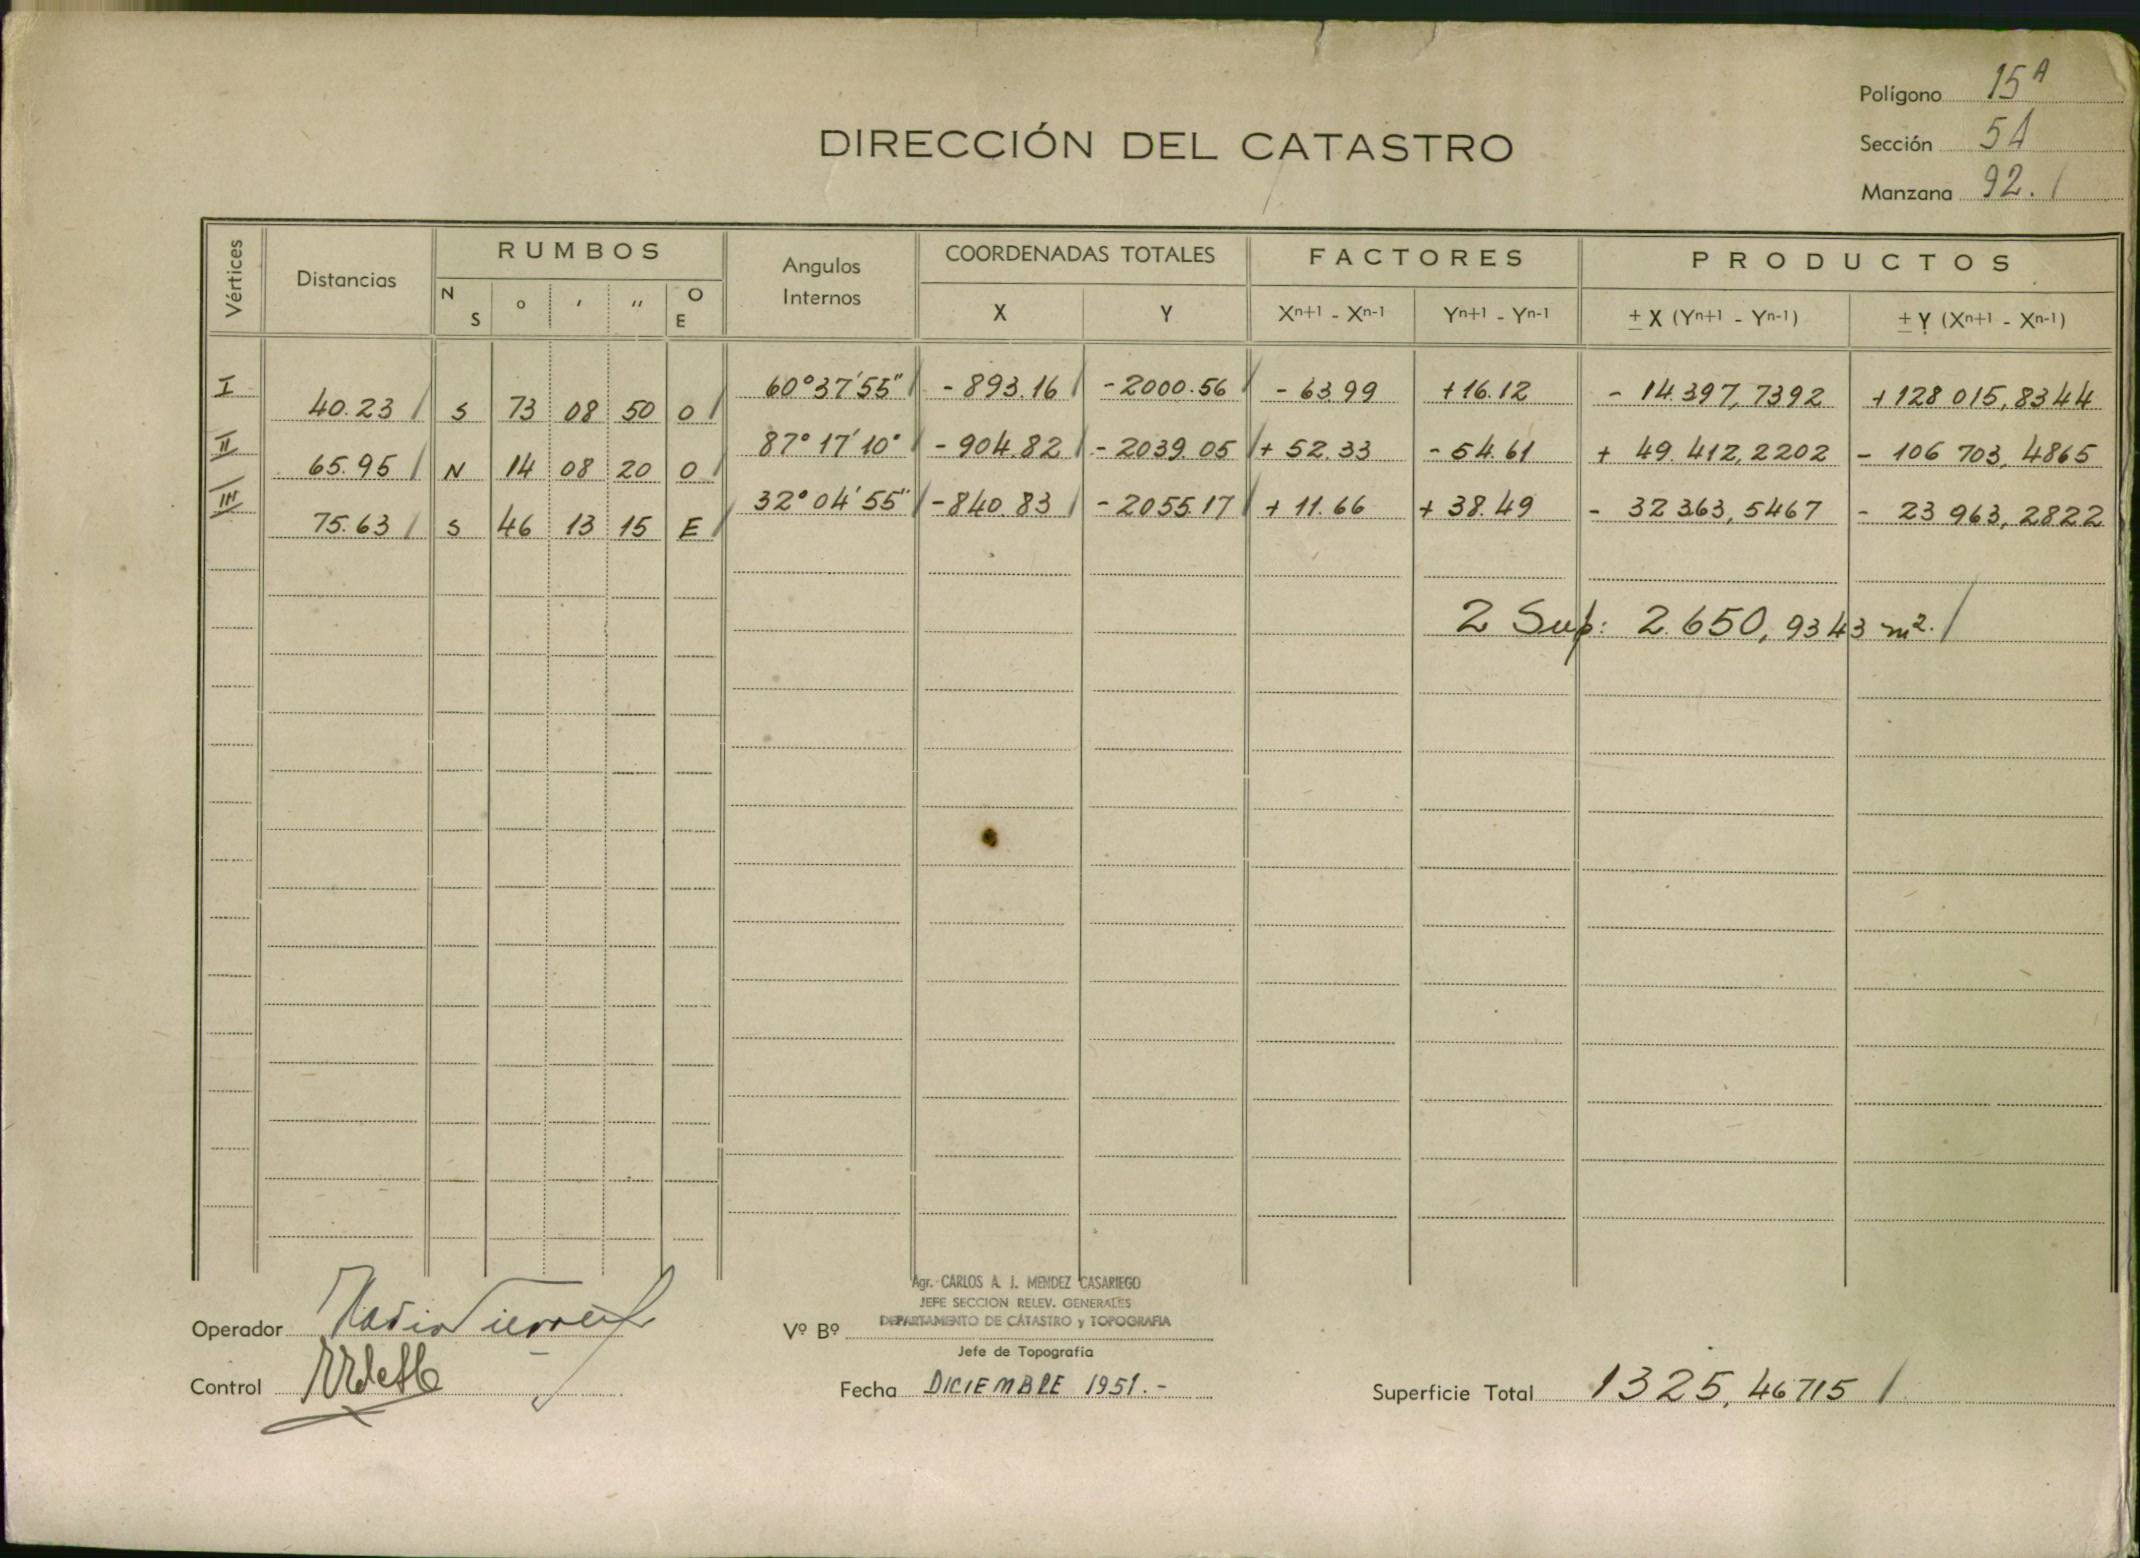 Polígono 15A
Sección 5A
Manzana 92.
DIRECCIÓN DEL CATASTRO
Vértices Distancias RUMBOS Angulos Internos COORDENADAS TOTALES FACTORES PRODUCTOS
N S ° ′ ″ O E X Y Xn+1 - Xn-1 Yn+1 - Yn-1 ± X (Yn+1 - Yn-1) ± Y (Xn+1 - Xn-1)
I 60°37'55" -893.16 -2000.56 -63.99 +16.12 -14.397,7392 +128 015,8344
40.23 S 73 08 50 O
II 87°17'10" -904.82 -2039.05 +52.33 -54.61 +49.412,2202 -106 703,4865
65.95 N 14 08 20 O
III 32°04'55" -840.83 -2055.17 +11.66 +38.49 -32363,5467 -23 963,2822
75.63 S 46 13 15 E
2 Sup: 2.650,9343 m2.
Agr. CARLOS A. J. MENDEZ CASARIEGO
JEFE SECCION RELEV. GENERALES
DEPARTAMENTO DE CATASTRO y TOPOGRAFIA
Operador
Vº Bº
Jefe de Topografía
Control
Fecha DICIEMBRE 1951.-
Superficie Total 1325,46715